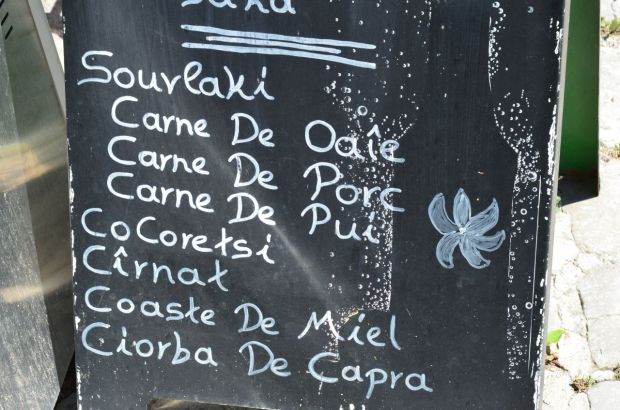 Souvlaki
Carne De Oaîe
Carne De Porc
Carne De Pui
CoCoretsi
Cîrnat
Coaste De Miel
Ciorba De Capra